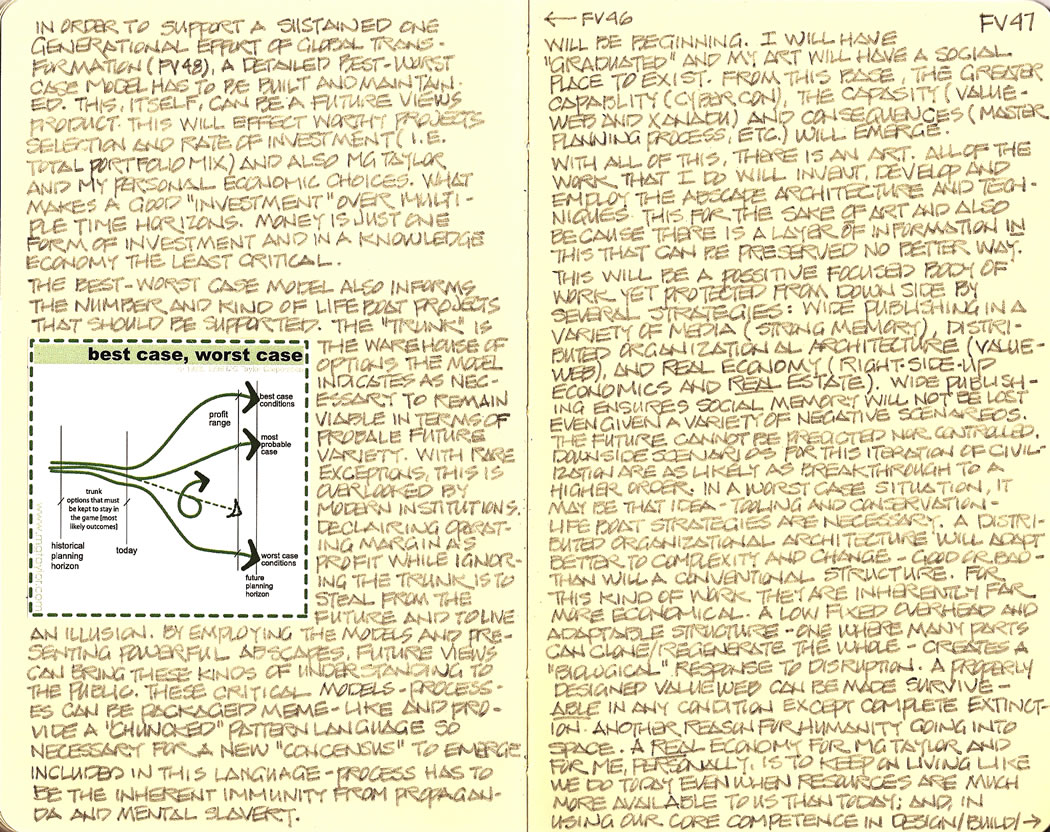 IN ORDER TO SUPPORT A SUSTAINED ONE
GENERATIONAL EFFORT OF GLOBAL TRANS-
FORMATION (FV48), A DETAILED BEST-WORST
CASE MODEL HAS TO BE BUILT AND MAINTAIN-
ED. THIS, ITSELF, CAN BE A FUTURE VIEWS
PRODUCT. THIS WILL EFFECT WORTHY PROJECTS
SELECTION AND RATE OF INVESTMENT (I.E.
TOTAL PORTFOLIO MIX) AND ALSO MG TAYLOR
AND MY PERSONAL ECONOMIC CHOICES. WHAT
MAKES A GOOD "INVESTMENT" OVER MULTI-
PLE TIME HORIZONS. MONEY IS JUST ONE
FORM OF INVESTMENT AND IN A KNOWLEDGE
ECONOMY THE LEAST CRITICAL.
THE BEST-WORST CASE MODEL ALSO INFORMS
THE NUMBER AND KIND OF LIFE BOAT PROJECTS
THAT SHOULD BE SUPPORTED. THE "TRUNK" IS
THE WAREHOUSE OF
OPTIONS THE MODEL
INDICATES AS NEC-
ESSARY TO REMAIN
VIABLE IN TERMS OF
PROBALE FUTURE
VARIETY. WITH RARE
EXCEPTIONS, THIS IS
OVERLOOKED BY
MODERN INSTITUTIONS.
DECLAIRING OPERAT-
ING MARGINA'S
PROFIT WHILE IGNOR-
ING THE TRUNK IS TO
STEAL FROM THE
FUTURE AND TO LIVE
AN ILLUSION. BY EMPLOYING THE MODELS AND PRE-
SENTING POWERFUL ABSCAPES, FUTURE VIEWS
CAN BRING THESE KINDS OF UNDERSTANDING TO
THE PUBLIC. THESE CRITICAL MODELS-PROCESS-
ES CAN BE PACKAGED MEME-LIKE AND PRO-
VIDE A "CHUNCKED" PATTERN LANGUAGE SO
NECESSARY FOR A NEW "CONCENSUS" TO EMERGE.
INCLUDED IN THIS LANGUAGE-PROCESS HAS TO
BE THE INHERENT IMMUNITY FROM PROPAGAN-
DA AND MENTAL SLAVERY.
best case, worst case
best case
conditions
profit
range
most
probable
case
trunk
options that must
be kept to stay in
the game [most
likely outcomes]
historical
planning
horizon
today
worst case
conditions
future
planning
horizon
← FV46
FV47
WILL BE BEGINNING. I WILL HAVE
"GRADUATED" AND MY ART WILL HAVE A SOCIAL
PLACE TO EXIST. FROM THIS BASE, THE GREATER
CAPABLITY (CYBER CON), THE CAPASITY (VALUE-
WEB AND XANADU) AND CONSEQUENCES (MASTER
PLANNING PROCESS, ETC.) WILL EMERGE.
WITH ALL OF THIS, THERE IS AN ART. ALL OF THE
WORK THAT I DO WILL INVENT, DEVELOP AND
EMPLOY THE ABSCAPE ARCHITECTURE AND TECH-
NIQUES. THIS FOR THE SAKE OF ART AND ALSO
BECAUSE THERE IS A LAYER OF INFORMATION IN
THIS THAT CAN BE PRESERVED NO BETTER WAY.
THIS WILL BE A POSSITIVE FOCUSED BODY OF
WORK YET PROTECTED FROM DOWN SIDE BY
SEVERAL STRATEGIES: WIDE PUBLISHING IN A
VARIETY OF MEDIA (STRONG MEMORY), DISTRI-
BUTED ORGANIZATIONAL ARCHITECTURE (VALUE-
WEB), AND REAL ECONOMY (RIGHT-SIDE-UP
ECONOMICS AND REAL ESTATE). WIDE PUBLISH-
ING ENSURES SOCIAL MEMORY WILL NOT BE LOST
EVEN GIVEN A VARIETY OF NEGATIVE SCENAREOS.
THE FUTURE CANNOT BE PREDICTED NOR CONTROLLED.
DOWNSIDE SCENARIOS FOR THIS ITERATION OF CIVIL-
IZATION ARE AS LIKELY AS BREAKTHROUGH TO A
HIGHER ORDER. IN A WORST CASE SITUATION, IT
MAY BE THAT IDEA-TOOLING AND CONSERVATION-
LIFE BOAT STRATEGIES ARE NECESSARY. A DISTRI-
BUTED ORGANIZATIONAL ARCHITECTURE WILL ADAPT
BETTER TO COMPLEXITY AND CHANGE-GOOD OR BAD-
THAN WILL A CONVENTIONAL STRUCTURE. FOR
THIS KIND OF WORK THEY ARE INHERENTLY FAR
MORE ECONOMICAL. A LOW FIXED OVERHEAD AND
ADAPTABLE STRUCTURE-ONE WHERE MANY PARTS
CAN CLONE/REGENERATE THE WHOLE-CREATES A
"BIOLOGICAL" RESPONSE TO DISRUPTION. A PROPERLY
DESIGNED VALUEWEB CAN BE MADE SURVIVE-
ABLE IN ANY CONDITION EXCEPT COMPLETE EXTINCT-
ION. ANOTHER REASON FOR HUMANITY GOING INTO
SPACE. A REAL ECONOMY FOR MG TAYLOR AND
FOR ME, PERSONALLY, IS TO KEEP ON LIVING LIKE
WE DO TODAY EVEN WHEN RESOURCES ARE MUCH
MORE AVAILABLE TO US THAN TODAY; AND, IN
USING OUR CORE COMPETENCE IN DESIGN/BUILD/→